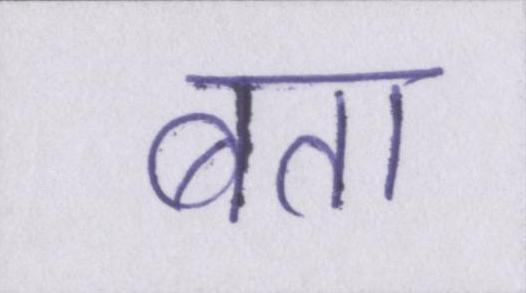 बता